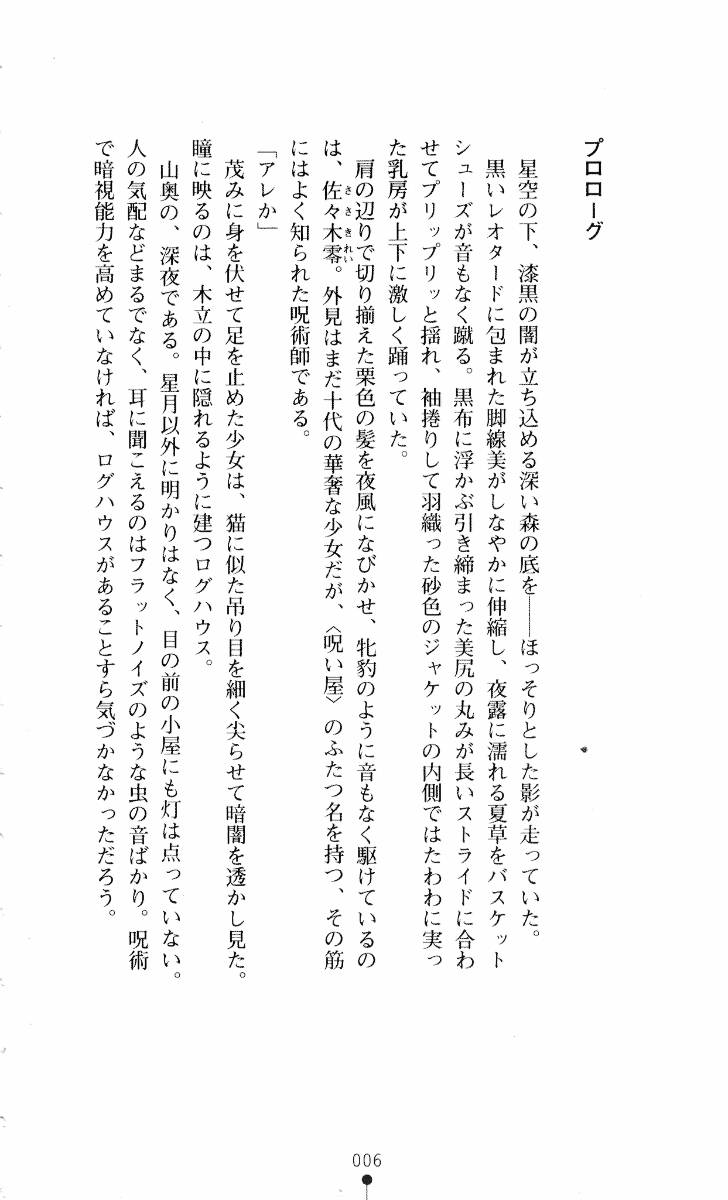 プロローグ
星空の下、漆黒の闇が立ち込める深い森の底を――ほっそりとした影が走っていた。
黒いレオタードに包まれた脚線美がしなやかに伸縮し、夜露に濡れる夏草をバスケット
シューズが音もなく蹴る。黒布に浮かぶ引き締まった美尻の丸みが長いストライドに合わ
せてプリップリッと揺れ、袖捲りして羽織った砂色のジャケットの内側ではたわわに実っ
た乳房が上下に激しく踊っていた。
肩の辺りで切り揃えた栗色の髪を夜風になびかせ、牝豹のように音もなく駆けているの
は、佐々木零。外見はまだ十代の華奢な少女だが、〈呪い屋〉のふたつ名を持つ、その筋
にはよく知られた呪術師である。
「アレか」
茂みに身を伏せて足を止めた少女は、猫に似た吊り目を細く尖らせて暗闇を透かし見た。
瞳に映るのは、木立の中に隠れるように建つログハウス。
山奥の、深夜である。星月以外に明かりはなく、目の前の小屋にも灯は点っていない。
人の気配などまるでなく、耳に聞こえるのはフラットノイズのような虫の音ばかり。呪術
で暗視能力を高めていなければ、ログハウスがあることすら気づかなかっただろう。
006